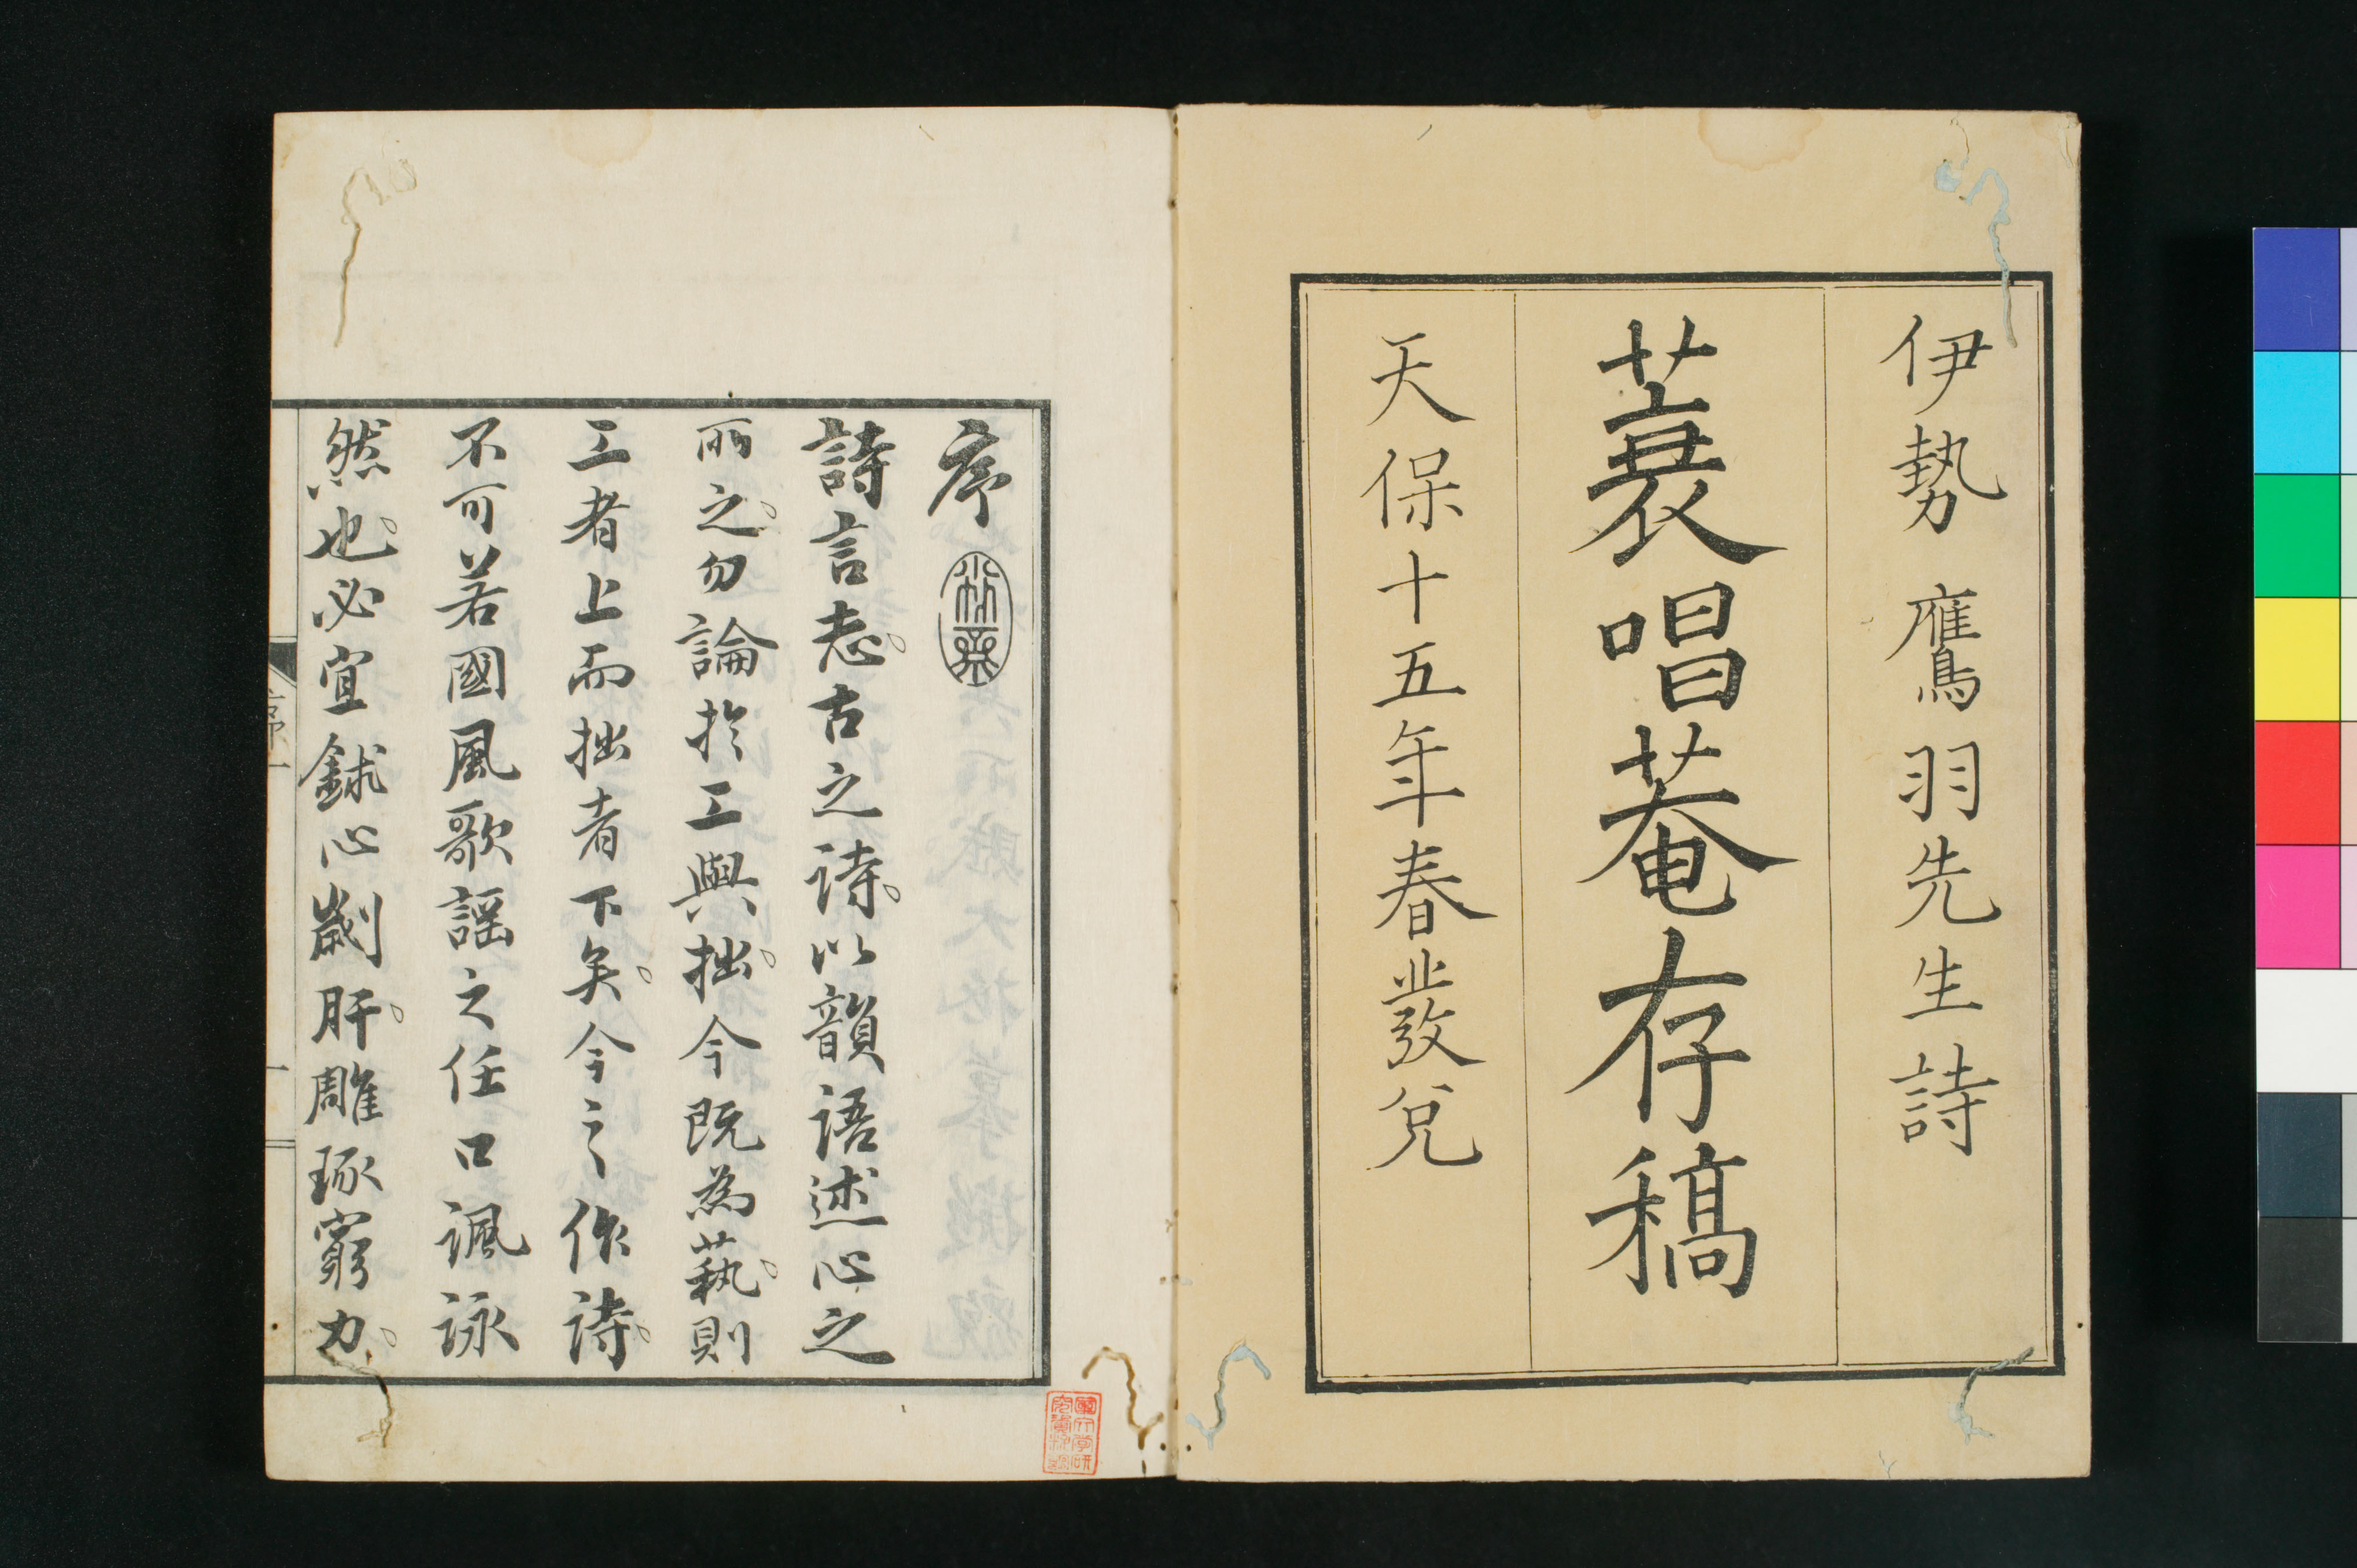 伊勢 鷹羽先生詩
蓑唱菴存稿
天保十五年春發兌
序
詩言志。古之詩。以韻語述心之
所之。勿論於工與拙。今既為藝。則
工者上而拙者下矣。今之作詩。
不可若國風歌謡之任口諷詠
然也。必宜鉥心劌肝。雕琢窮力。
序
一